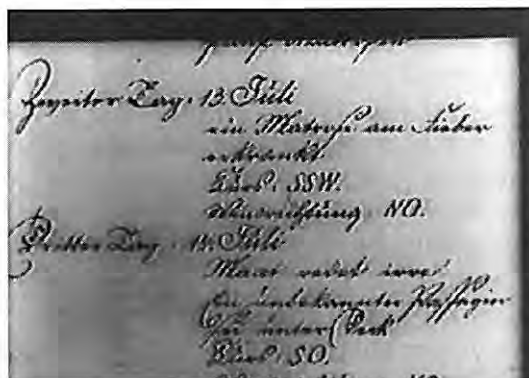 Zweiter Tag: 13. Juli
ein Matrose am Fieber
erkrankt
Kurs: SSW.
Windrichtung: NO.
Dritter Tag: 14. Juli
Maat redet irre
Ein unbekannter Passagier
sei unter Deck
Kurs: SO.